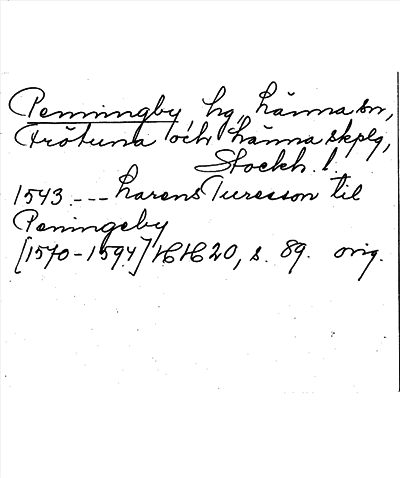 Penningby, hg, Länna sn,
Frötuna och Länna skplg,
Stockh. l.
1543 --- Larens Turesson til
Peningeby
[1570-1594] HH 20, s. 89. orig.